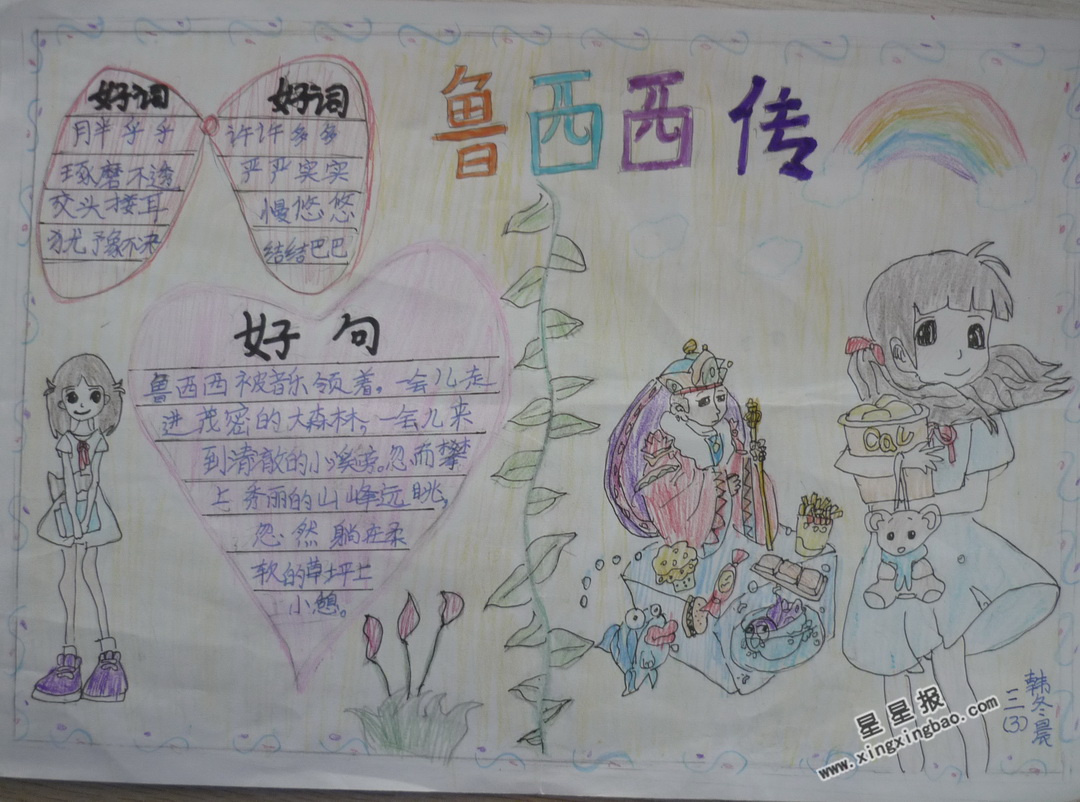 鲁西西传
好词
月半乎乎
琢磨不透
交头接耳
犹予象不决
好词
许许多多
严严实实
慢悠悠
结结巴巴
好句
鲁西西被音乐领着。一会儿走
进茂密的大森林,一会儿来
到清澈的小溪旁。忽而攀
上秀丽的山峰远眺,
忽然躺在柔
软的草坪上
小憩。
Cau
韩冬晨
三(3)
星星报
www.xingxingbao.com